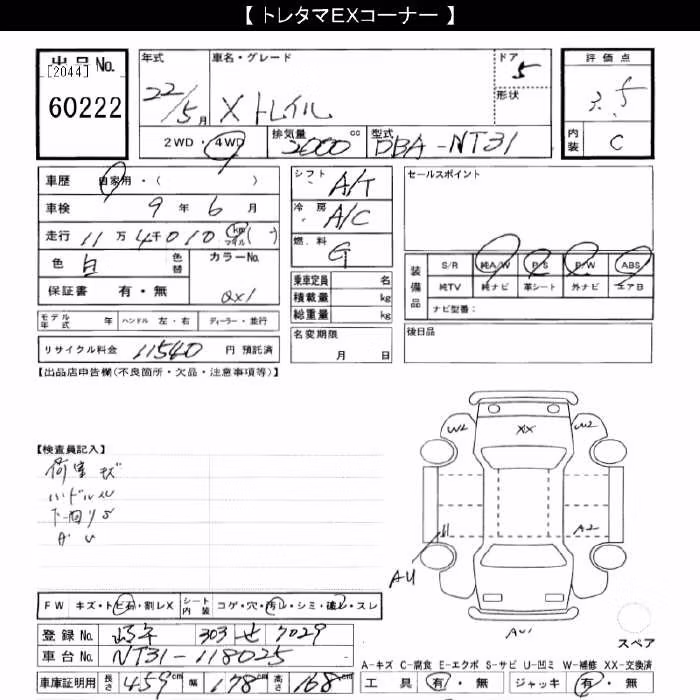 【 トレタマEXコーナー 】
出品No.
[2044]
60222
年式 22/5月
車名・グレード Xトレイル
ドア 5
形状
2WD・4WD
排気量 2000 cc
型式 DBA-NT31
評価点 3.5
内装 C
車歴 自家用・( )
車検 9年6月
走行 11万4千010 km マイル ( )
色 白 色替
カラーNo. QX1
保証書 有・無
モデル年式 年 ハンドル 左・右 ディーラー・並行
リサイクル料金 11540 円 預託済
シフト A/T
冷房 A/C
燃料 G
乗車定員 名
積載量 kg
総重量 kg
名変期限 月 日
セールスポイント
装備品 S/R 純A/W P/S P/W ABS
純TV 純ナビ 革シート 外ナビ エアB
ナビ型番:
後日品
【出品店申告欄(不良箇所・欠品・注意事項等)】
【検査員記入】
荷室キズ
W2 XX W2
A2
AU1
FW キズ・トビ石・割レX
シート内装 コゲ・穴・汚レ・シミ・破レ・スレ
登録No. 303 せ 7029
車台No. NT31-118025
車庫証明用 長さ 459cm 幅 178cm 高さ 168cm
スペア
A-キズ C-腐食 E-エクボ S-サビ U-凹ミ W-補修 XX-交換済
工具 有・無 ジャッキ 有・無